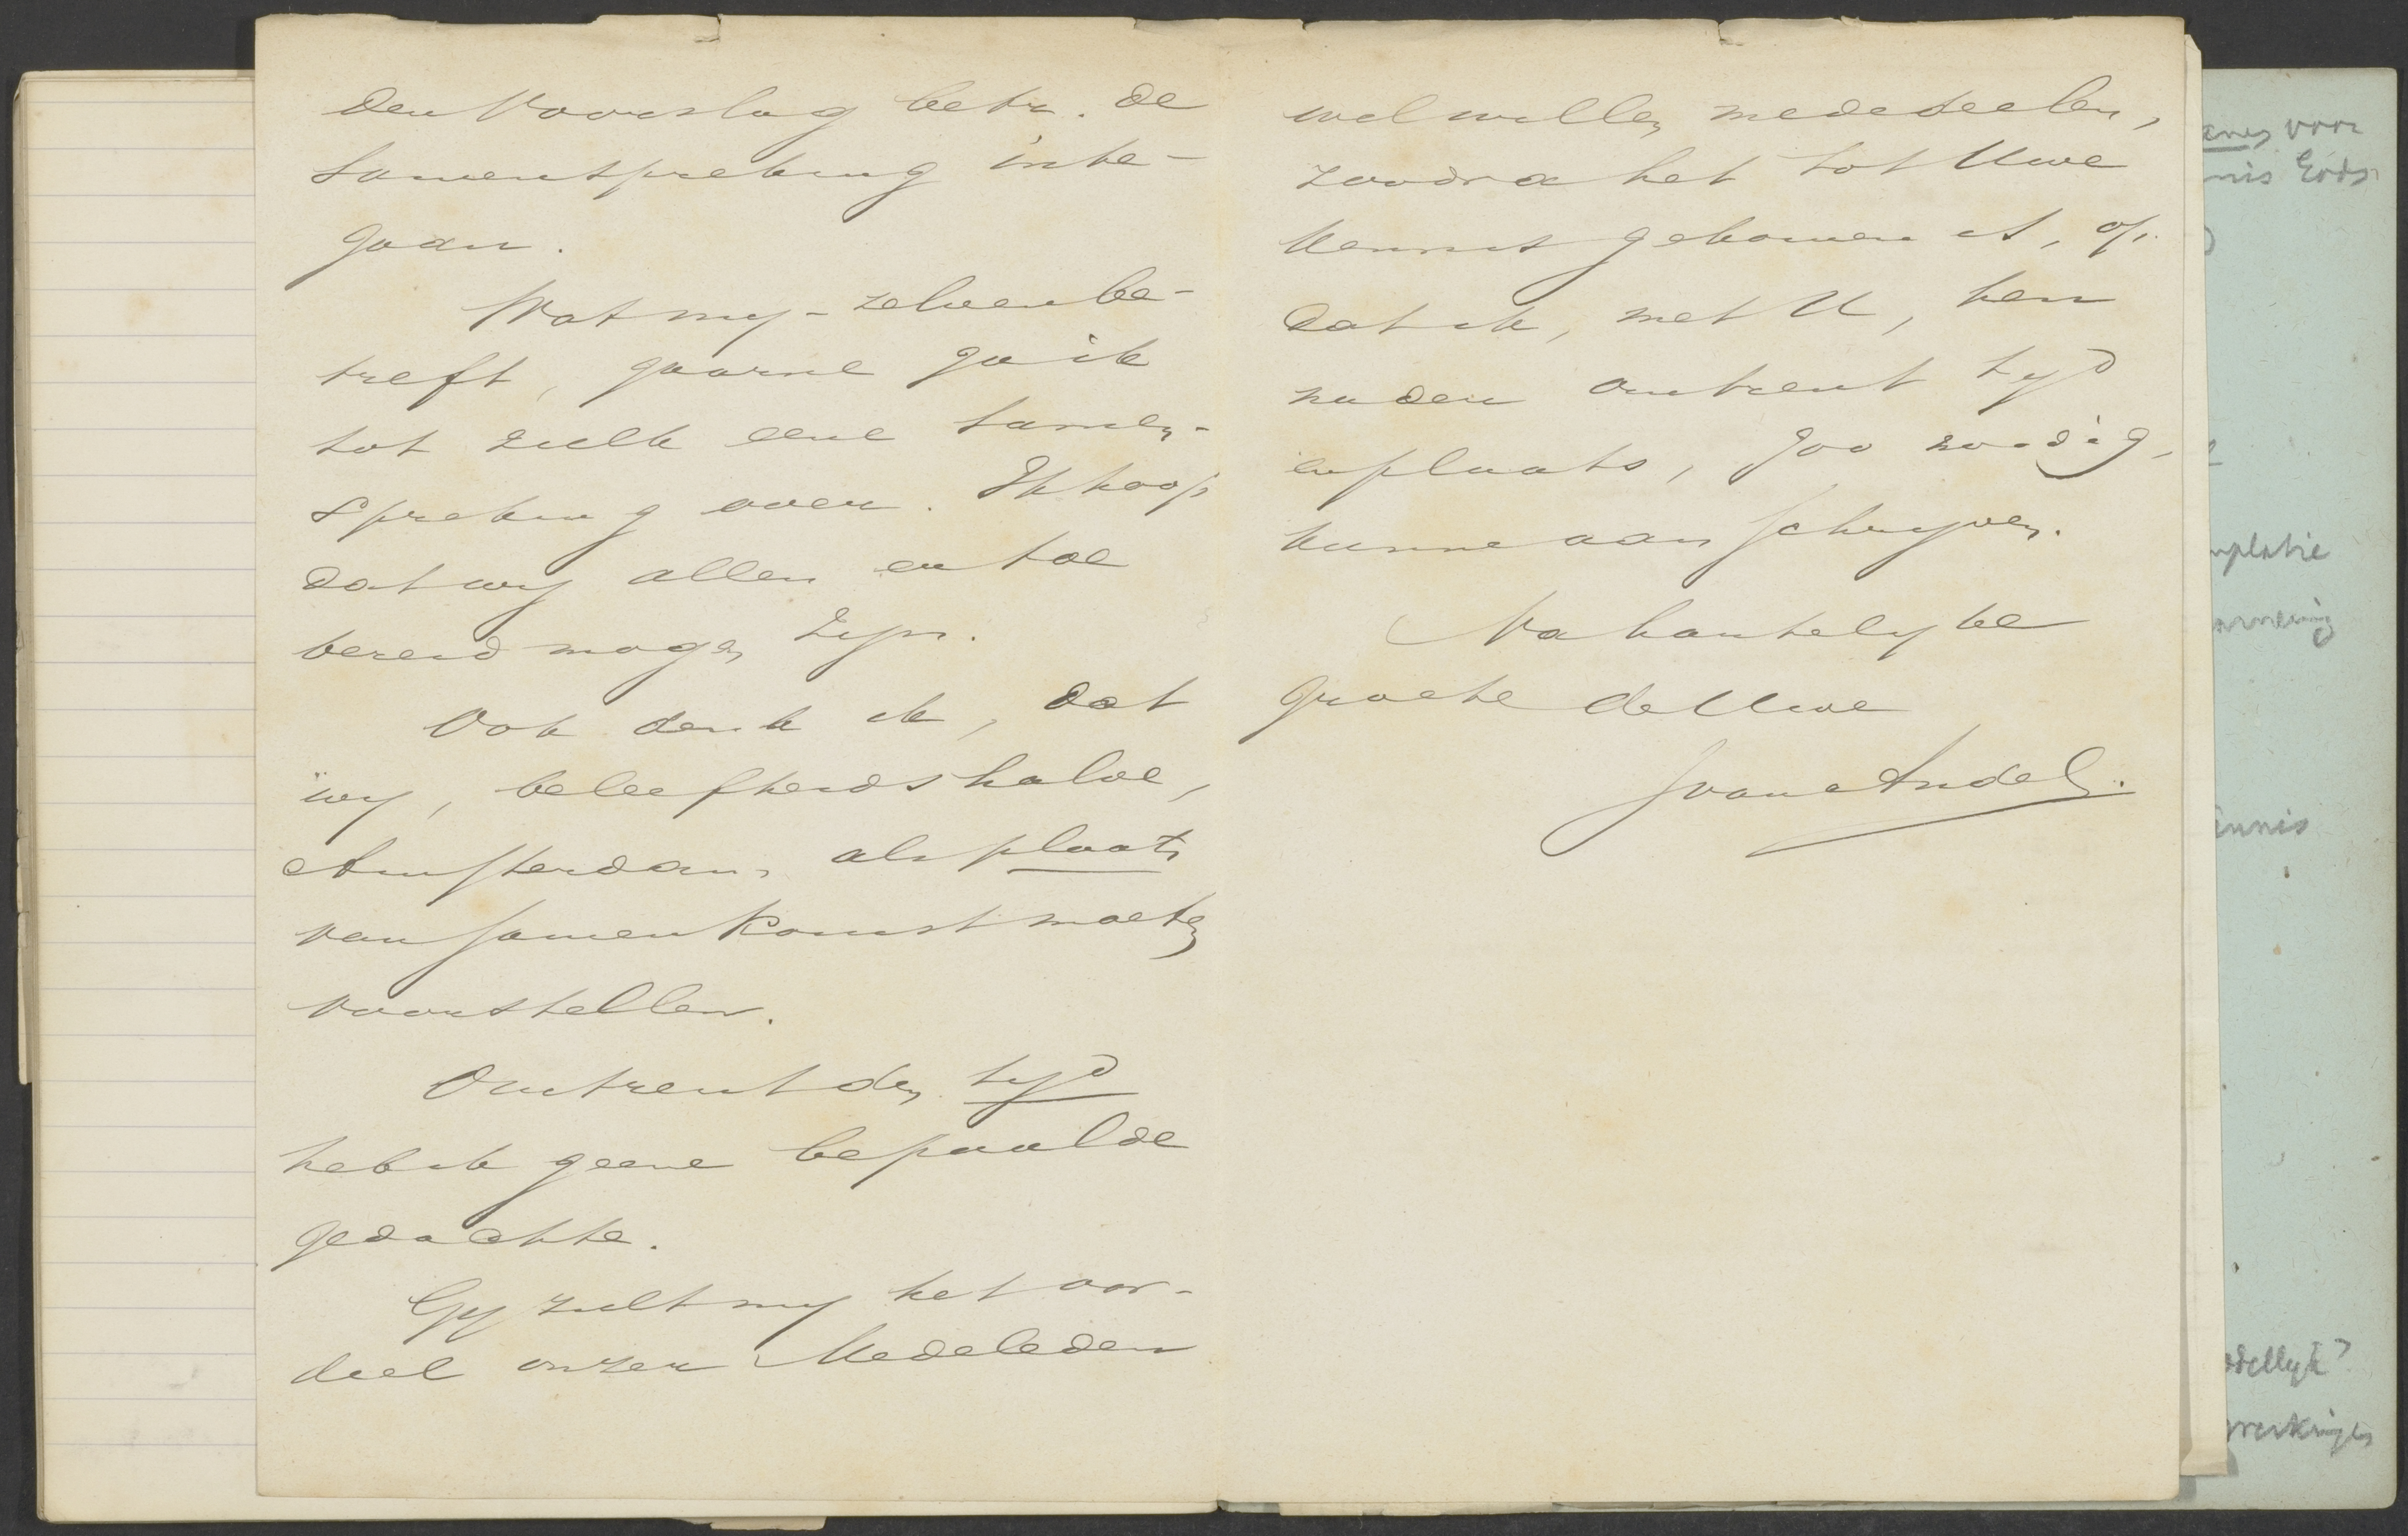 den Voorslag betr. de
samenspreking inte-
gaan.
Wat my-zelven be-
treft, gaarne ga ik
tot zulk eene samen-
spreking over. Ik hoop
dat wy allen er toe
bereid mogen zyn.
Ook denk ik, dat
wy, beleefheidshalve,
Amsterdam, als plaats
van samenkomst moeten
voorstellen.
Omtrent den tyd
heb ik geene bepaalde
gedachte.
Gy zult my het oor-
deel onzer Medeleden
wel willen mededeelen,
zoodra het tot Uwe
kennis gekomen is, op
dat ik, met U, hen
nader omtrent tyd
en plaats, zoo noodig,
kunne aanschryven.
Na hartelyke
groete de Uwe
J van Andel.
voor
Eods